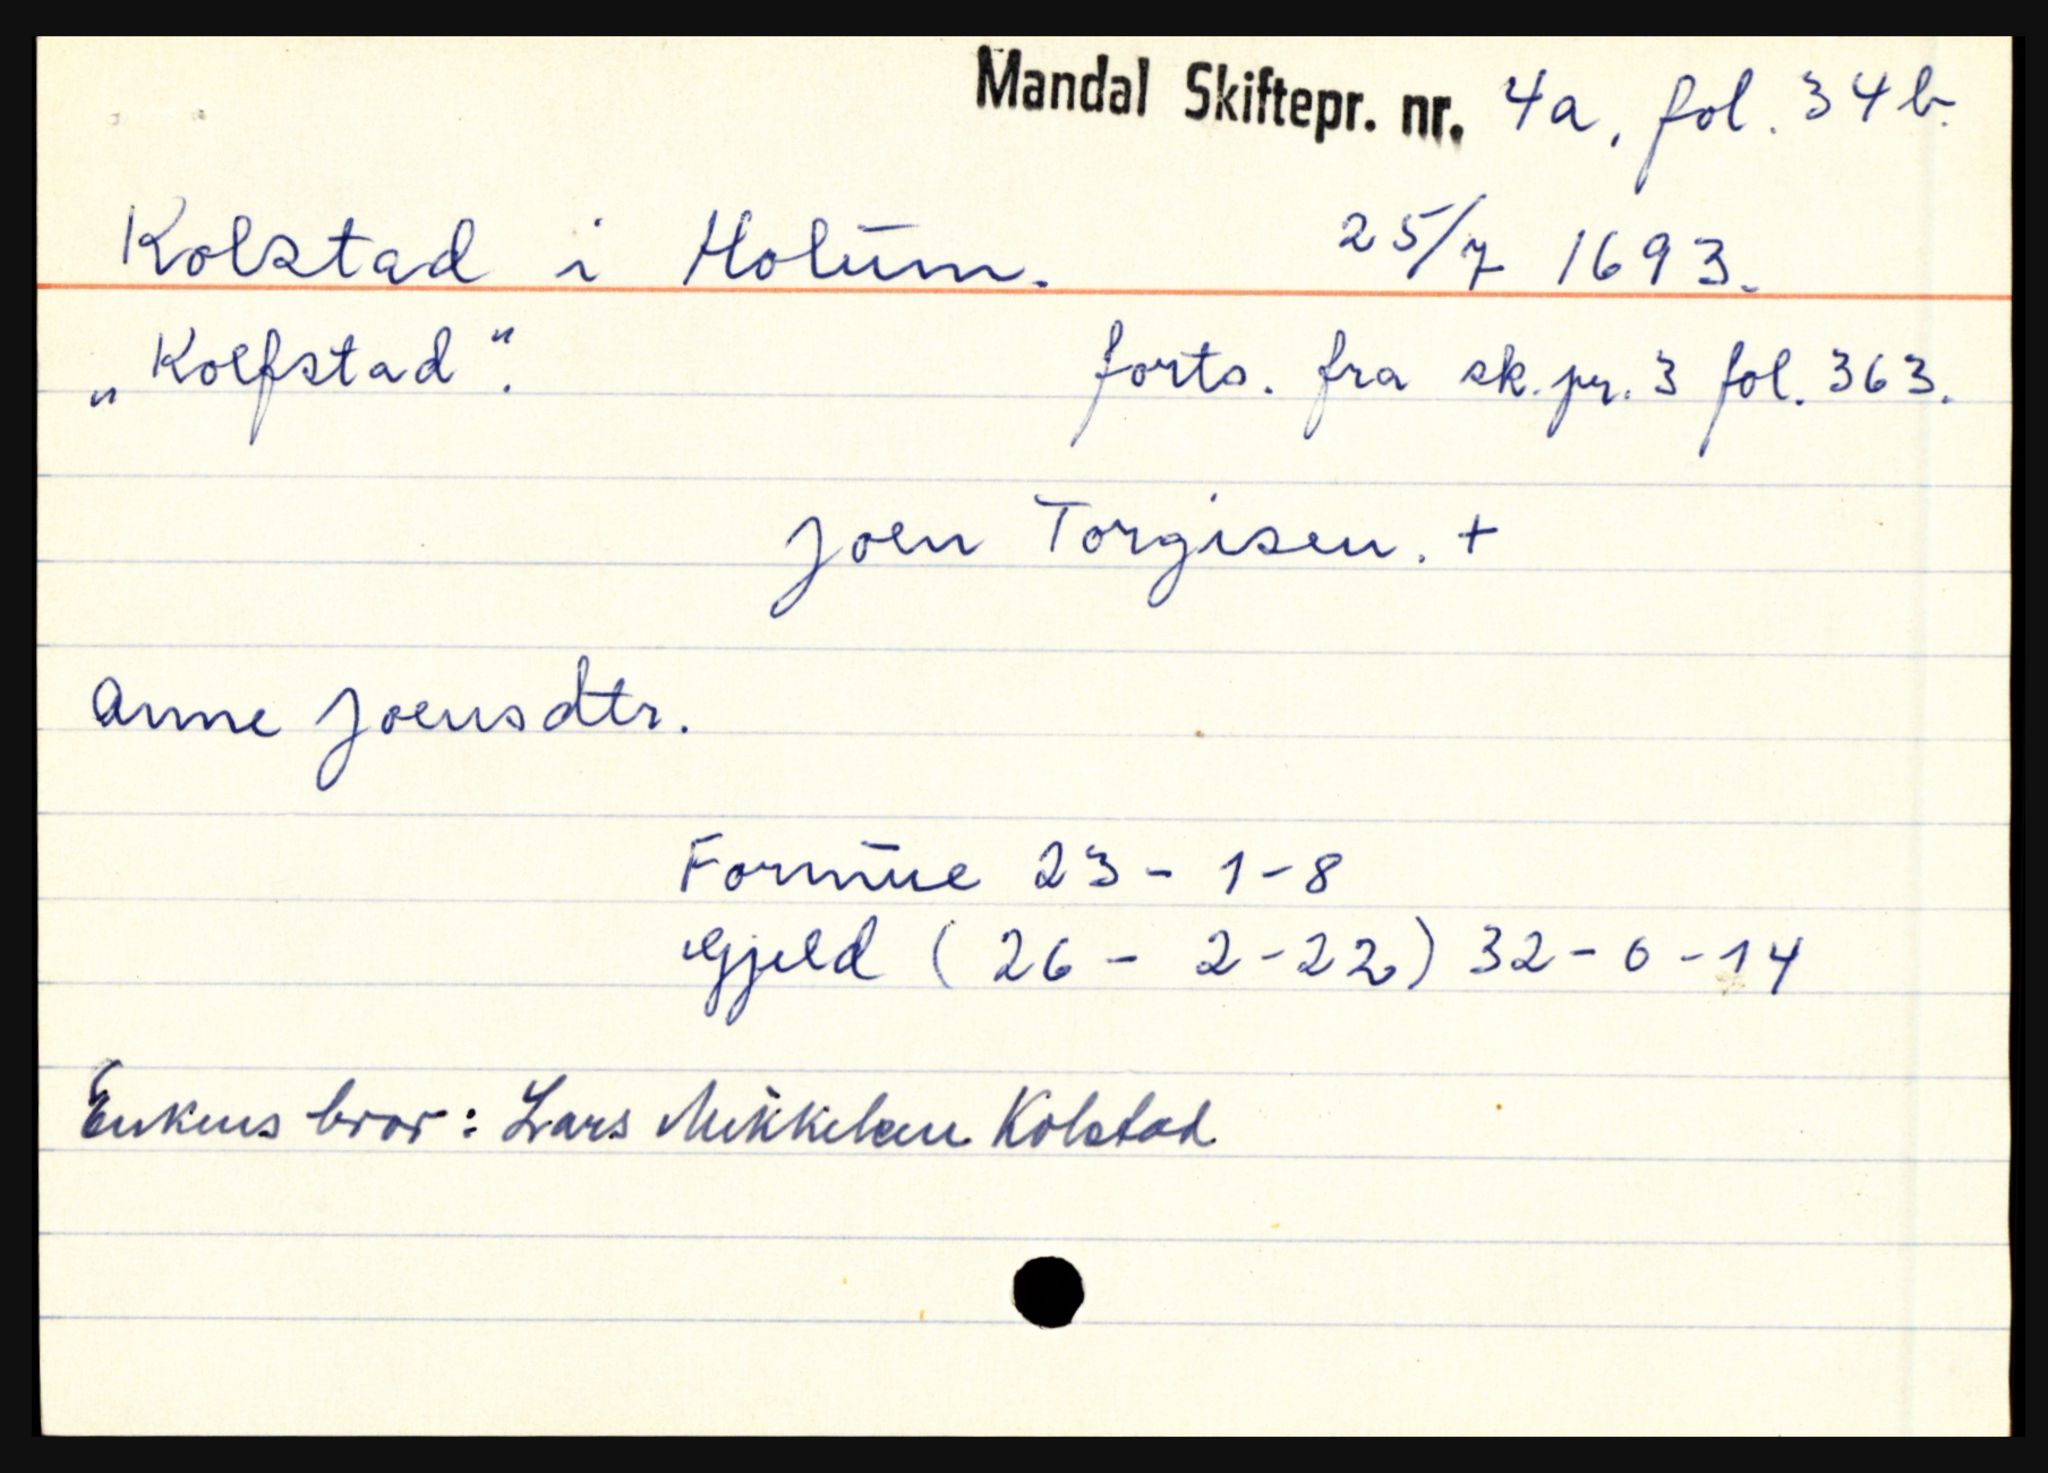 Mandal Skiftepr. nr. 4a, fol. 34b.
Kolstad i Holum. 25/7 1693.
„Kolfstad“. forts. fra sk.pr. 3 fol. 363.
Joen Torgisen. +
Anne Joensdtr.
Formue 23 - 1 - 8
Gjeld (26 - 2 - 22) 32 - 0 - 14
Enkens bror: Lars Mikkelsen Kolstad